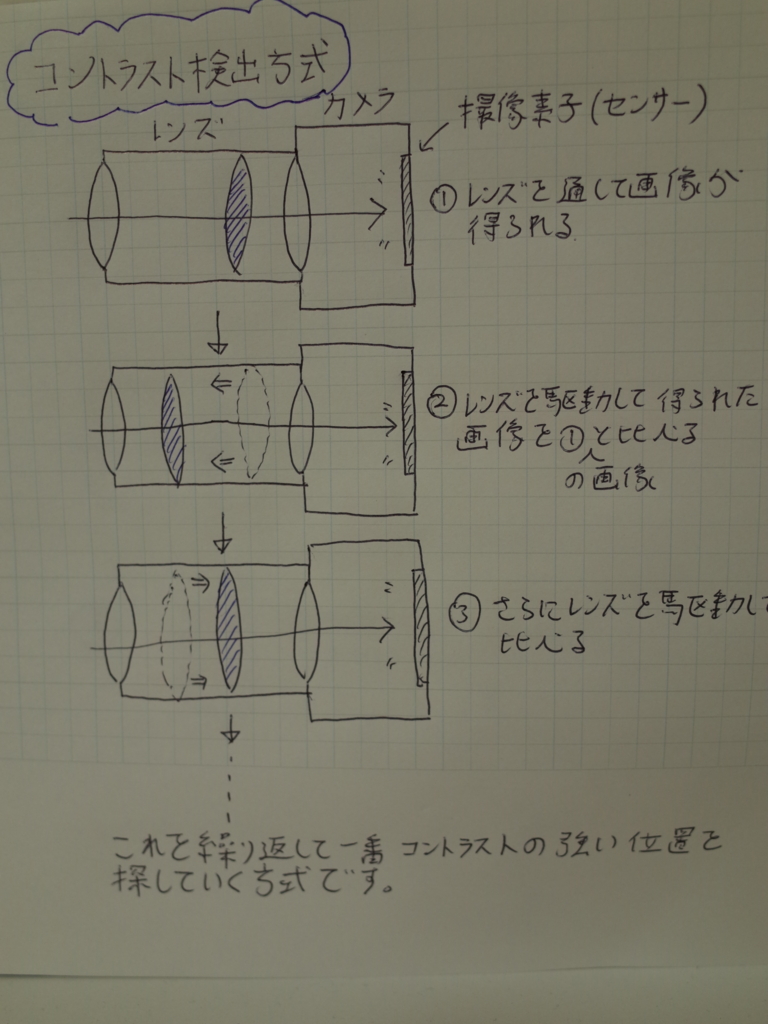 コントラスト検出方式
カメラ
レンズ
撮像素子(センサー)
①レンズを通して画像が
得られる
②レンズを駆動して得られた
画像を①と比べる
の画像
③さらにレンズを駆動して
比べる
これを繰り返して一番コントラストの強い位置を
探していく方式です。